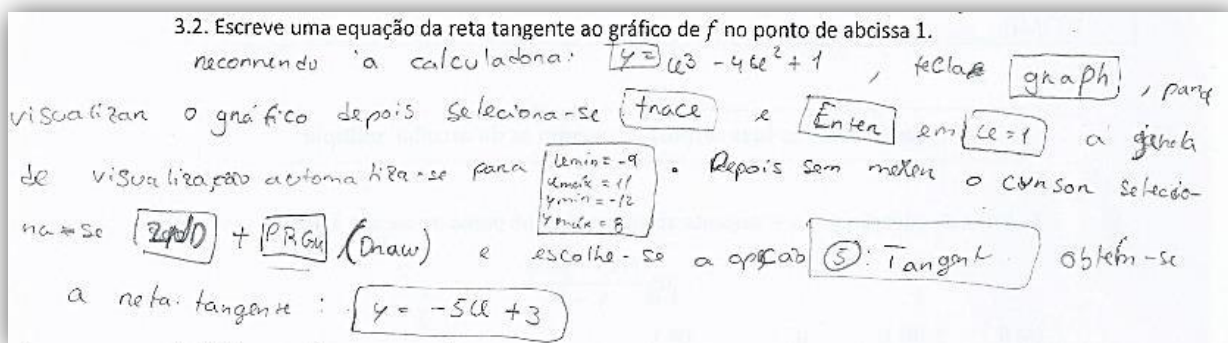 3.2. Escreve uma equação da reta tangente ao gráfico de f no ponto de abcissa 1.
recorrendo à calculadora: y = x³ - 4x² + 1, tecla graph, para
visualizar o gráfico depois seleciona-se trace e Enter em x=1 a janela
de visualização automatiza-se para xmin = -9
xmáx = 11
ymin = -12
ymáx = 8 . Depois sem mexer o cursor selecio-
na-se 2nd + PRGM (Draw) e escolhe-se a opção ⑤: Tangent obtém-se
a reta tangente: y = -5x + 3